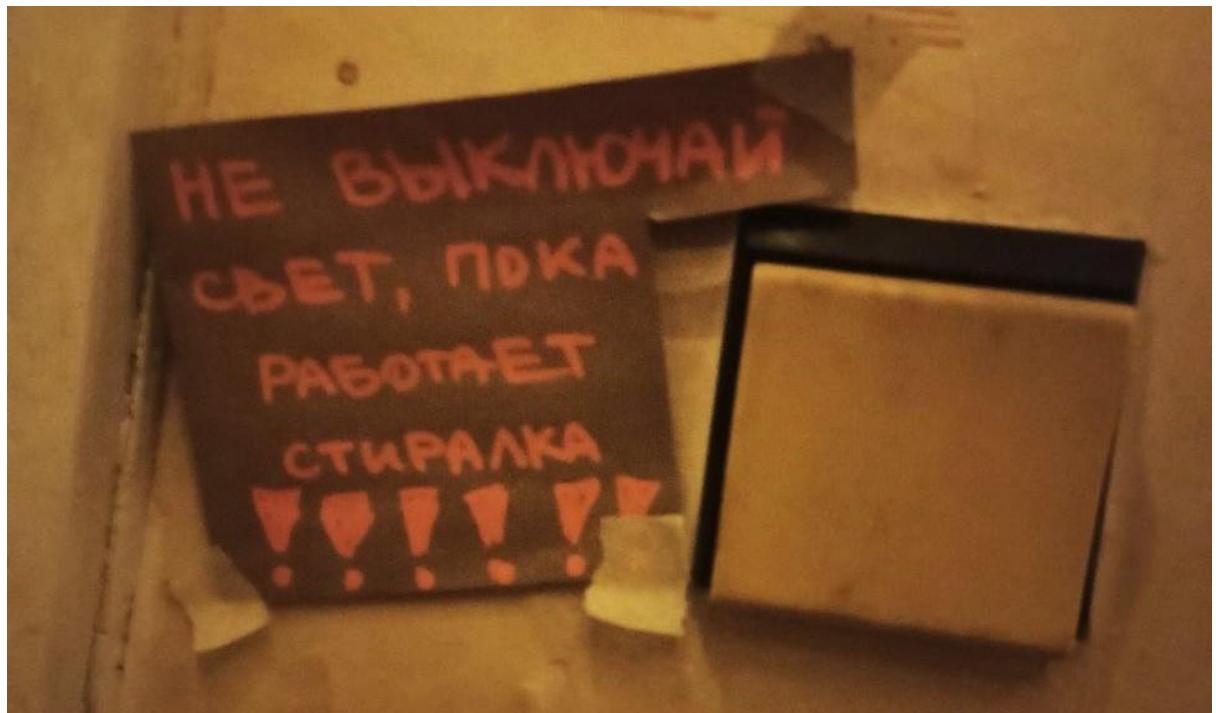 НЕ ВЫКЛЮЧАЙ
СВЕТ, ПОКА
РАБОТАЕТ
СТИРАЛКА
!!!!!!